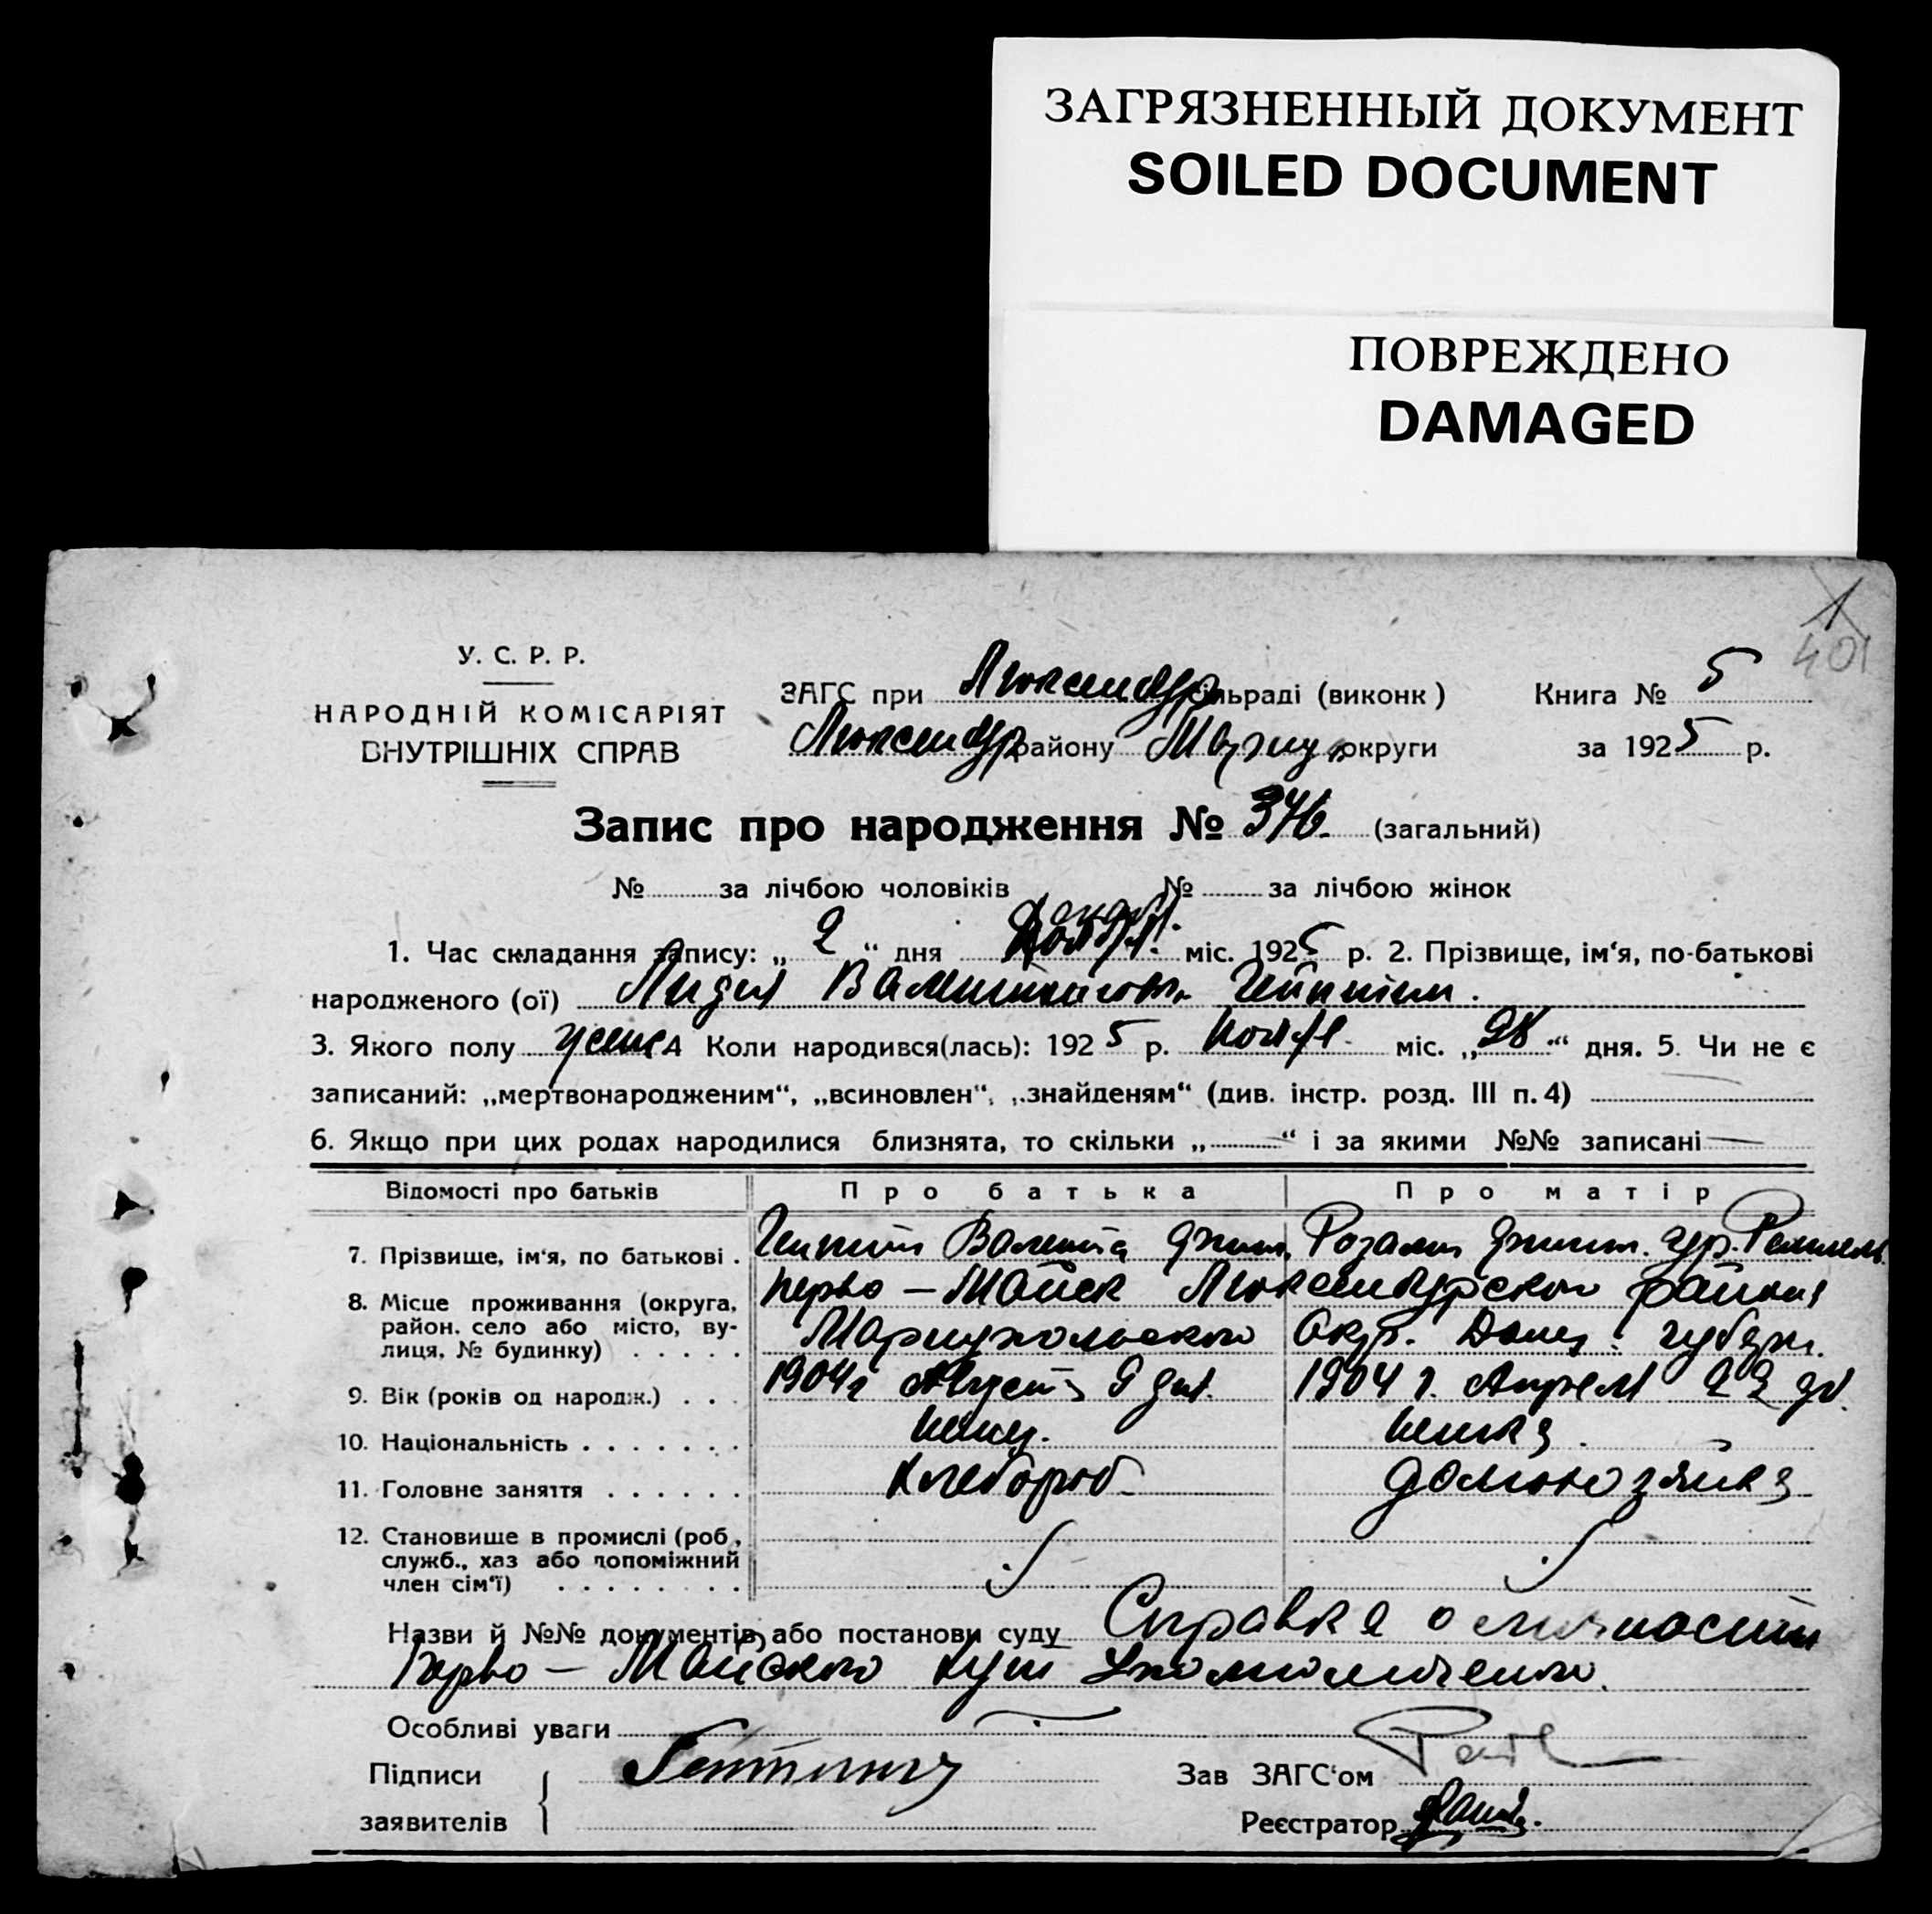 ЗАГРЯЗНЕННЫЙ ДОКУМЕНТ
SOILED DOCUMENT
ПОВРЕЖДЕНО
DAMAGED
1
401
У. С. Р. Р.
НАРОДНІЙ КОМІСАРІЯТ
ВНУТРІШНІХ СПРАВ
ЗАГС при Люксембур сільраді (виконк)
Люксембур району Мариуп округи
Книга № 5
за 1925 р.
Запис про народження № 346. (загальний)
№ за лічбою чоловіків № за лічбою жінок
1. Час складання запису: „ 2 “ дня Декабр. міс. 1925 р. 2. Прізвище, ім‘я, по-батькові
народженого (ої) Лидия
3. Якого полу женс 4 Коли народився(лась): 1925 р. Ноября міс. „28“ дня. 5. Чи не є
записаний: „мертвонародженим“, „всиновлен“, „знайденям“ (див. інстр. розд. III п. 4)
6. Якщо при цих родах народилися близнята, то скільки „ “ і за якими №№ записані
Відомості про батьків Про батька Про матір
7. Прізвище, ім‘я, по батькові . Розалия
8. Місце проживання (округа, район. село або місто, вулиця, № будинку) . . . . . Перво – Майск Люксембургского района
Мариупольского Окр. Донец. губерн.
9. Вік (років од народж.) . . . 1904 г Август 9 дня. 1904 г. Апреля 22 дн.
10. Національність . . . . . . . немец. немка.
11. Головне заняття . . . . . . Хлебороб домохозяйка
12. Становище в промислі (роб., служб., хаз або допоміжний член сім‘ї) . . . . . . . .
Назви й №№ документів або постанови суду Справка о личности
Перво – Майского
Особливі уваги
Підписи заявителів
Зав ЗАГС‘ом
Реєстратор